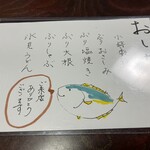 おし
小鉢
さしみ
ぶり塩焼き
ぶり大根
ぶりしゃぶ
氷見うどん
ご来店
ありがとう
ございます